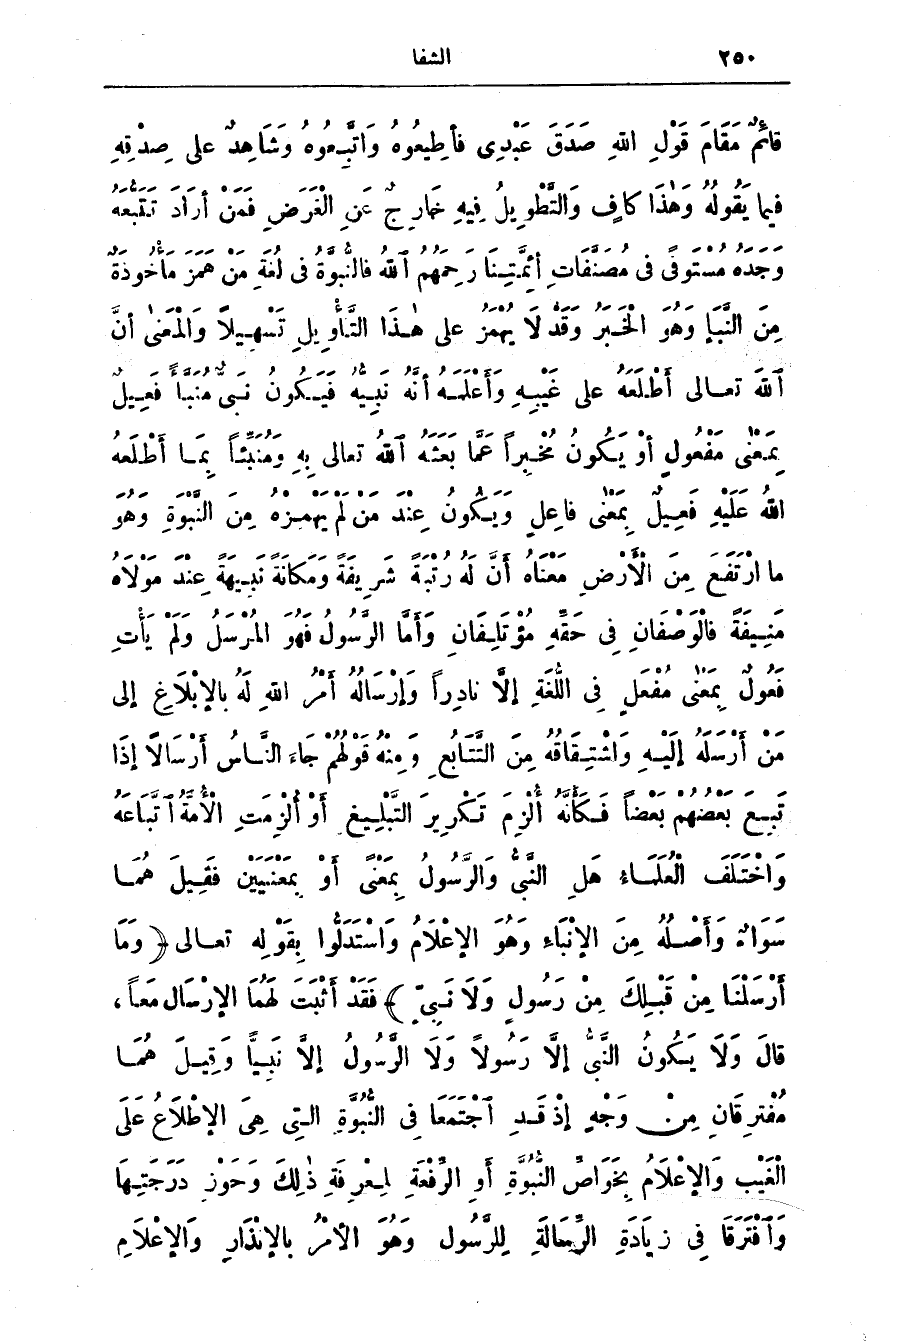 ٢٥٠
الشفا
قائِمٌ مَقَامَ قَوْلِ اللهِ صَدَقَ عَبْدِى فَأَطِيعُوهُ وَاتَّبِعُوهُ وَشَاهِدٌ عَلى صِدْقِهِ
فيما يَقُولُهُ وَهٰذَا كافٍ وَالتَّطْوِيلُ فِيهِ خَارِجٌ عَنِ الْغَرَضِ فَمَنْ أرَادَ تَتَبُّعَهُ
وَجَدَهُ مُسْتَوْفًى فى مُصَنَّفَاتِ أئِمَّتِنَا رَحِمَهُمُ ٱللهُ فَالنُّبُوَّةُ فى لُغَةِ مَنْ هَمَزَ مَأْخُوذَةٌ
مِنَ النَّبَإِ وَهُوَ الْخَبَرُ وَقَدْ لَا يُهْمَزُ عَلى هٰذَا التَّأْوِيلِ تَسْهِيلاً وَالْمَعْنٰى أنَّ
ٱللهَ تعالى أَطْلَعَهُ عَلى غَيْبِهِ وَأَعْلَمَهُ أنَّهُ نَبِيُّهُ فَيَكُونُ نَبِىٌّ مُنَبَّأً فَعِيلٌ
بِمَعْنٰى مَفْعُولٍ أوْ يَكُونُ مُخْبِراً عَمَّا بَعَثَهُ ٱللهُ تعالى بِهِ وَمُنَبِّئاً بِمَا أَطْلَعَهُ
اللهُ عَلَيْهِ فَعِيلٌ بِمَعْنٰى فاعِلٍ وَيَكُونُ عِنْدَ مَنْ لَمْ يَهْمِزْهُ مِنَ النَّبْوَةِ وَهُوَ
ما ارْتَفَعَ مِنَ الْأَرْضِ مَعْنَاهُ أَنَّ لَهُ رُتْبَةً شَرِيفَةً وَمَكَانَةً نَبِيهَةً عِنْدَ مَوْلَاهُ
مُنِيفَةً فَالْوَصْفَانِ فى حَقِّهِ مُؤْتَلِفَانِ وَأَمَّا الرَّسُولُ فَهُوَ المُرْسَلُ وَلَمْ يَأْتِ
فَعُولٌ بِمَعْنٰى مُفْعَلٍ فى اللُّغَةِ إلَّا نادِراً وَإرْسَالُهُ أَمْرُ اللهِ لَهُ بالإِبْلَاغِ إلى
مَنْ أَرْسَلَهُ إلَيْهِ وَاشْتِقَاقُهُ مِنَ التَّتَابُعِ وَمِنْهُ قَوْلُهُمْ جَاءَ النَّاسُ أَرْسَالاً إذَا
تَبِعَ بَعْضُهُمْ بَعْضاً فَكَأَنَّهُ أُلْزِمَ تَكْرِيرَ التَّبْلِيغِ أَوْ أُلْزِمَتِ الْأُمَّةُ ٱتِّبَاعَهُ
وَاخْتَلَفَ الْعُلَمَاءُ هَلِ النَّبِىُّ وَالرَّسُولُ بِمَعْنًى أَوْ بِمَعْنَيَيْنِ فَقِيلَ هُمَا
سَوَاءٌ وَأَصْلُهُ مِنَ الإِنْبَاءِ وَهُوَ الإِعْلَامُ وَاسْتَدَلُّوا بِقَوْلِهِ تعالى ﴿ وَمَا
أَرْسَلْنَا مِنْ قَبْلِكَ مِنْ رَسُولٍ وَلَا نَبِىٍّ ﴾ فَقَدْ أَثْبَتَ لَهُمَا الإِرْسَالَ مَعاً ،
قالَ وَلَا يَكُونُ النَّبِىُّ إلَّا رَسُولاً وَلَا الرَّسُولُ إلاَّ نَبِيًّا وَقِيلَ هُمَا
مُفْتَرِقَانِ مِنْ وَجْهٍ إذْ قَدِ ٱجْتَمَعَا فى النُّبُوَّةِ التى هِىَ الإِطْلَاعُ عَلَى
الْغَيْبِ وَالإِعْلَامُ بِخَوَاصِّ النُّبُوَّةِ أَوِ الرِّفْعَةِ لِمَعْرِفَةِ ذٰلِكَ وَحَوْزِ دَرَجَتِهَا
وَٱفْتَرَقَا فى زِيَادَةِ الرِّسَالَةِ لِلرَّسُولِ وَهُوَ الأَمْرُ بالإِنْذَارِ وَالإِعْلَامِ